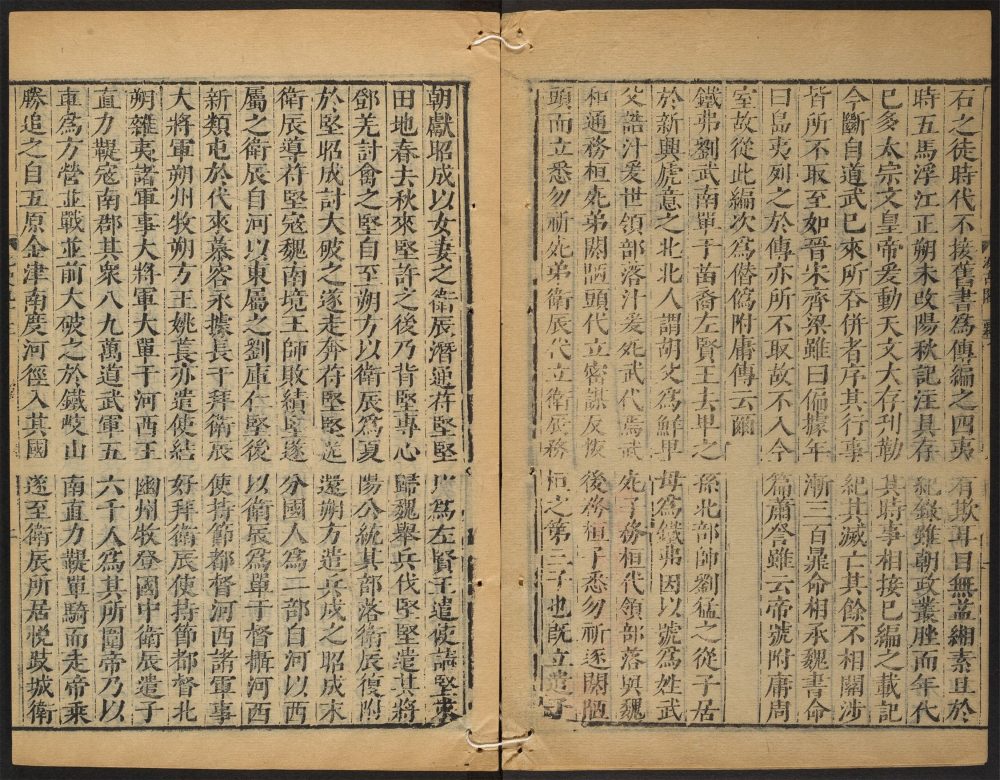 石之徒時代不接舊書爲傳編之四夷有欺耳目無益緗素且於
時五馬浮江正朔未改陽秋記注具存紀錄雖朝政叢脞而年代
已多太宗文皇帝爰動天文大存刋勒其時事相接已編之載記
今斷自道武已來所吞併者序其行事紀其滅亡其餘不相關涉
皆所不取至如晉宋齊梁雖曰偏據年漸三百鼎命相承魏書命
曰島夷列之於傳亦所不取故不入今篇蕭詧雖云帝號附庸周
室故從此編次爲僭僞附庸傳云爾
鐵弗劉武南單于苗裔左賢王去卑之孫北部帥劉猛之從子居
於新興虎意之北北人謂胡父爲鮮卑母爲鐵弗因以號爲姓武
父誥汁爰世領部落汁爰死武代焉武死子務桓代領部落與魏
和通務桓死弟閼陋頭代立密謀反叛後務桓子悉勿祈逐閼陋
頭而立悉勿祈死弟衛辰代立衛辰務桓之第三子也旣立遣子
朝獻昭成以女妻之衛辰潛通苻堅堅以爲左賢王遣使請堅求
田地春去秋來堅許之後乃背堅專心歸魏舉兵伐堅堅遣其將
鄧羌討禽之堅自至朔方以衛辰爲夏陽公統其部落衛辰復附
於堅昭成討大破之遂走奔苻堅堅送還朔方遣兵戍之昭成末
衛辰導苻堅寇魏南境王師敗績堅遂分國人爲二部自河以西
屬之衛辰自河以東屬之劉庫仁堅後以衛辰爲單于督攝河西
新類屯於代來慕容永據長干拜衛辰使持節都督河西諸軍事
大將軍朔州牧朔方王姚萇亦遣使結好拜衛辰使持節都督北
朔雜夷諸軍事大將軍大單于河西王幽州牧登國中衛辰遣子
直力鞮寇南郡其衆八九萬道武軍五六千人爲其所圍帝乃以
車爲方營並戰並前大破之於鐵岐山南直力鞮單騎而走帝乘
勝追之自五原金津南度河徑入其國遂至衛辰所居悅跋城衛